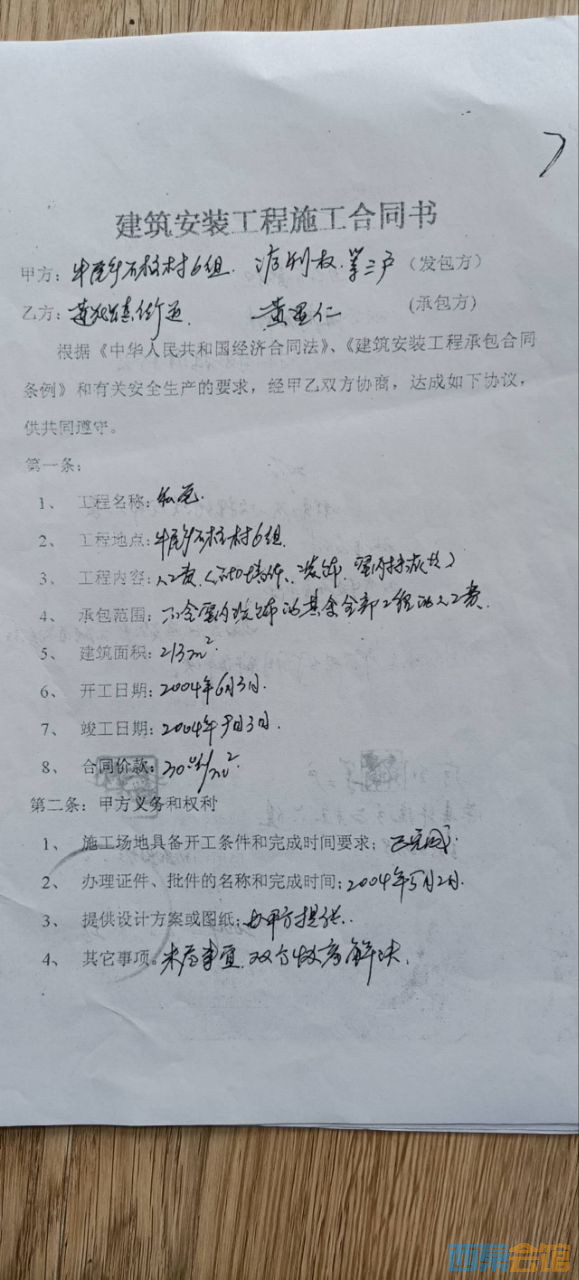 建筑安装工程施工合同书
甲方：牛尾乡石柱村6组. 权.等三户（发包方）
乙方： 黄 仁（承包方）
根据《中华人民共和国经济合同法》、《建筑安装工程承包合同
条例》和有关安全生产的要求，经甲乙双方协商，达成如下协议，
供共同遵守。
第一条：
1、 工程名称：私宅.
2、 工程地点：牛尾乡石柱村6组.
3、 工程内容：人工费（ 、装饰、室内 ）
4、 承包范围：不含室内装饰的其余全部工程的人工费.
5、 建筑面积：213m².
6、 开工日期：2004年6月3日.
7、 竣工日期：2004年 月3日.
8、 合同价款： /m²
第二条：甲方义务和权利
1、 施工场地具备开工条件和完成时间要求：已完成.
2、 办理证件、批件的名称和完成时间：2004年5月2日.
3、 提供设计方案或图纸：由甲方提供.
4、 其它事项。未尽事宜.双方协商解决.
西祠会馆